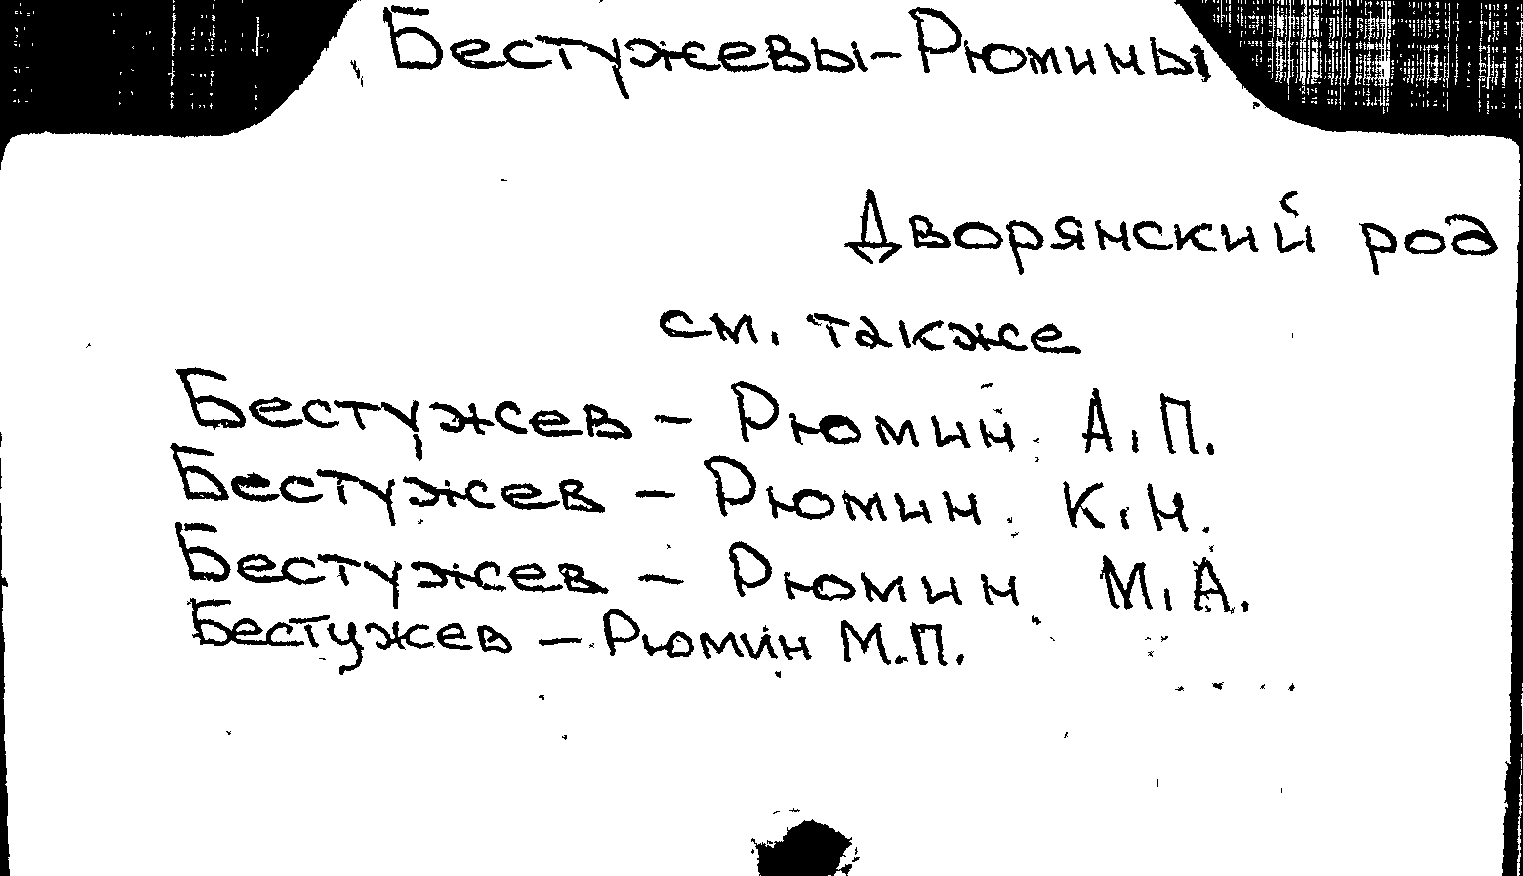 Бестужевы-Рюмины
Дворянский род
см. также
Бестужев - Рюмин А.П.
Бестужев - Рюмин К.Н.
Бестужев - Рюмин М.А.
Бестужев - Рюмин М.П.